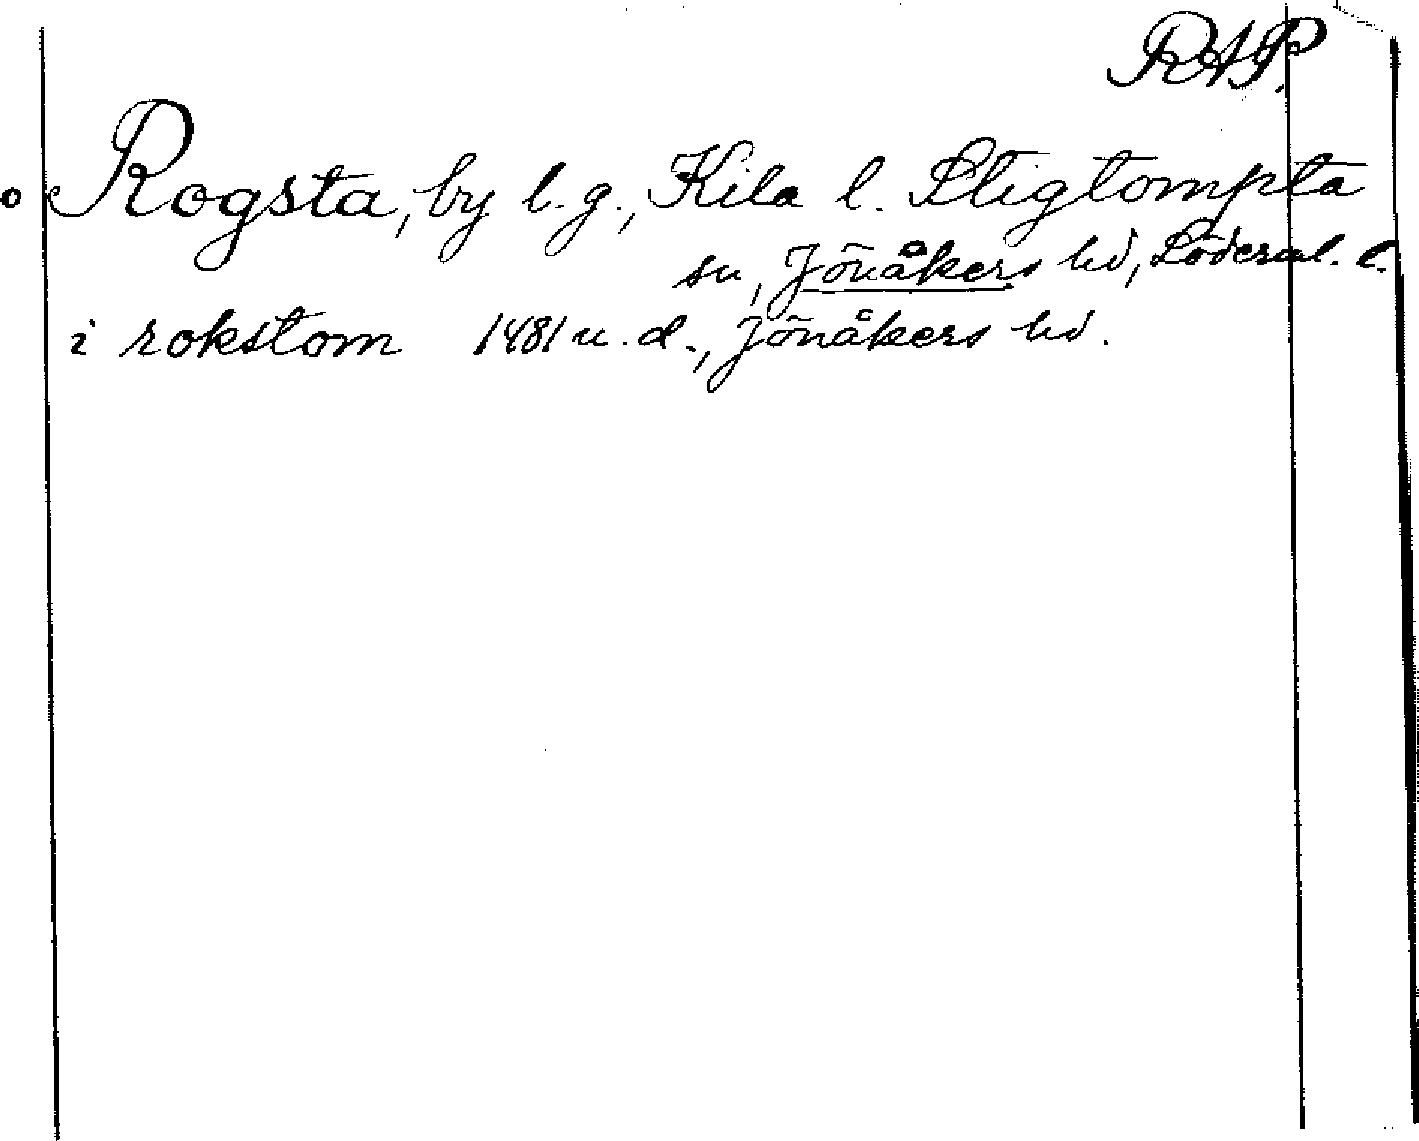 RAP.
o Rogsta, by l. g., Kila l. Stigtompta
sn, Jönåkers hd, Söderml. l.
i rokstom 1481 u. d., Jönåkers hd.